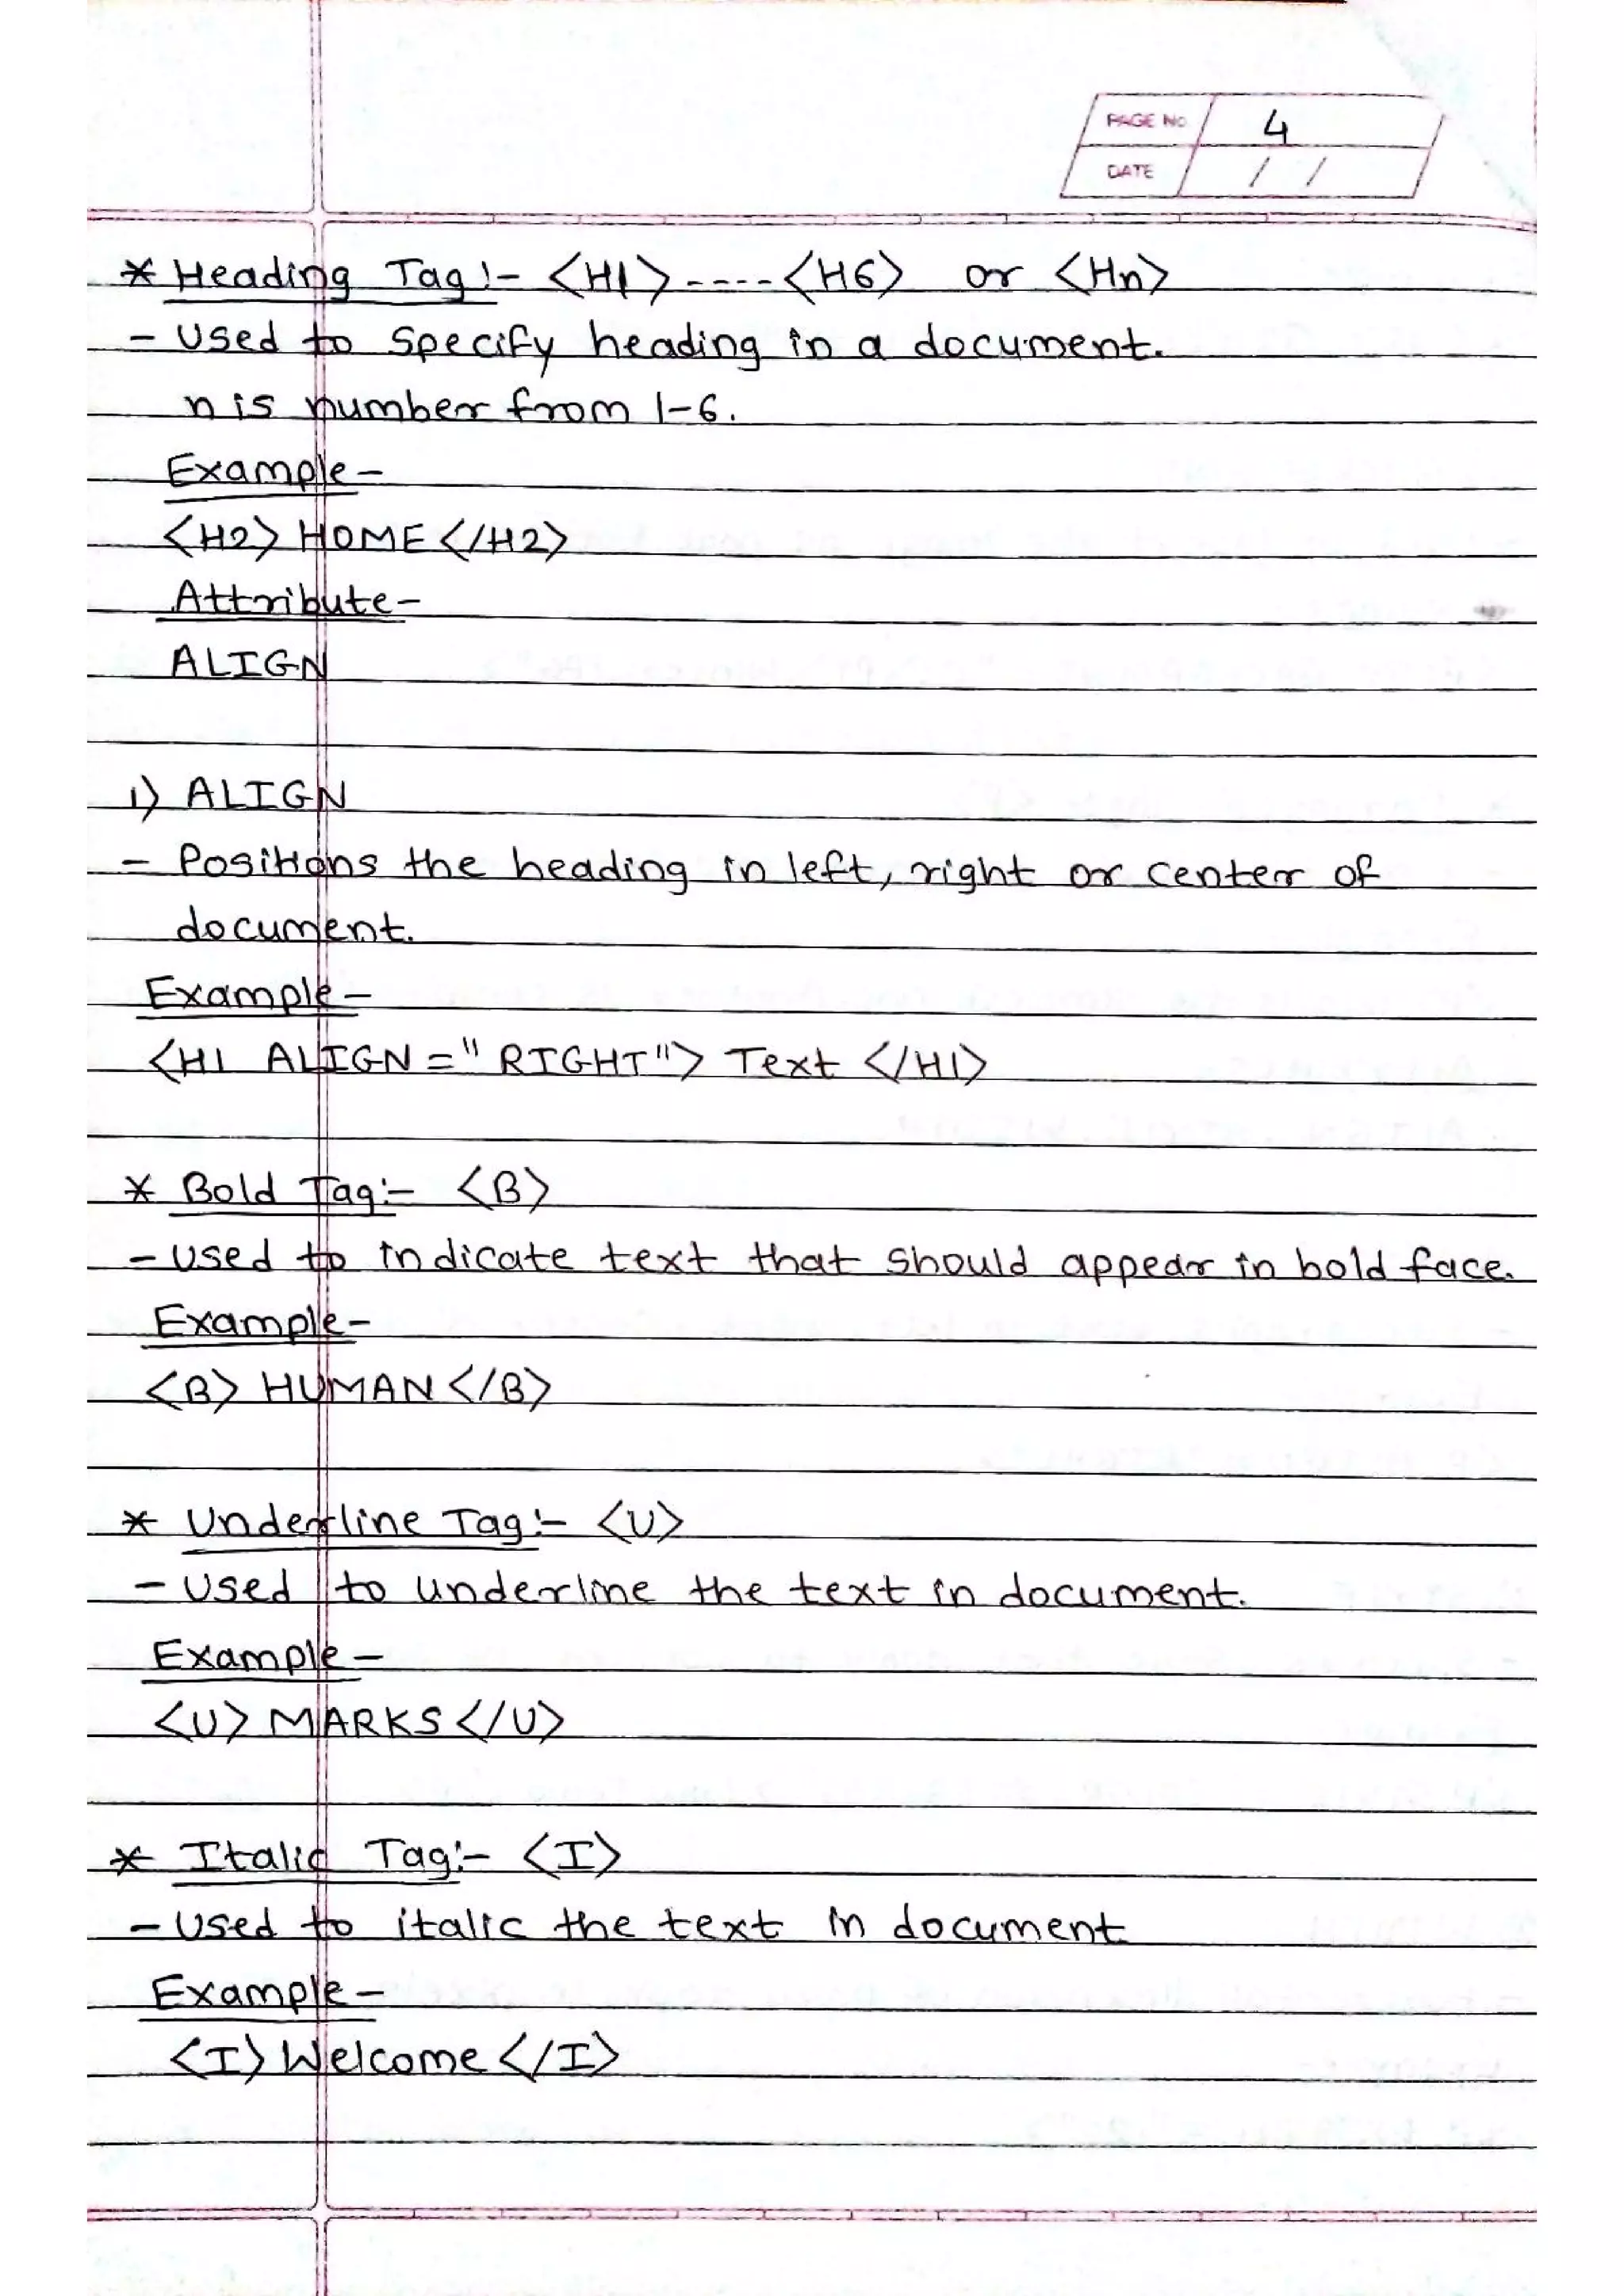 PAGE No 4
DATE / /
* Heading Tag :- <H1> ---- <H6> or <Hn>
- Used to specify heading in a document.
n is number from 1-6.
Example -
<H2> HOME </H2>
Attribute -
ALIGN
1) ALIGN
- Positions the heading in left, right or center of
document.
Example -
<H1 ALIGN = "RIGHT"> Text </H1>
* Bold Tag :- <B>
- Used to indicate text that should appear in bold face.
Example -
<B> HUMAN </B>
* Underline Tag :- <U>
- Used to underline the text in document.
Example -
<U> MARKS </U>
* Italic Tag :- <I>
- Used to italic the text in document
Example -
<I> Welcome </I>